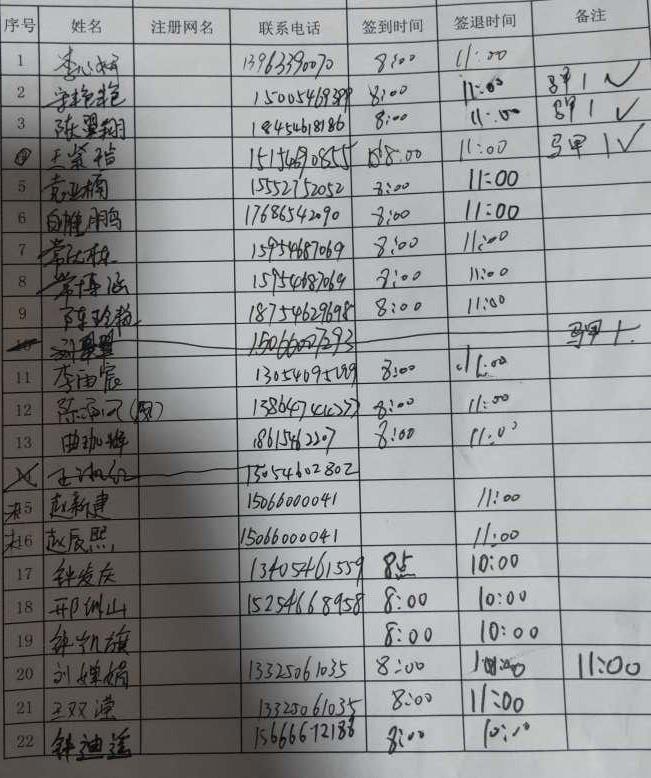 序号 姓名 注册网名 联系电话 签到时间 签退时间 备注
1 李心妍 13963390070 8:00 11:00
2 15005469389 8:00 11:00 马甲1√
3 陈翼翔 18454618186 8:00 11:00 马甲1√
王紫祎 15154690855 8:00 11:00 马甲1√
5 袁亚楠 15552752052 8:00 11:00
6 白雅鹏 17686542090 8:00 11:00
7 15954687069 8:00 11:00
8 常博涵 15954687069 8:00 11:00
9 18754629698 8:00 11:00
10 15066007293 马甲
11 李雨宸 13054695199 8:00 11:00
12 8:00 11:00
13 曲珈烨 18615462207 8:00 11:00
13054602802
15 赵新建 15066000041 11:00
16 赵辰熙 15066000041 11:00
17 钟发庆 13405461559 85 10:00
18 邢训山 15254668958 8:00 10:00
19 钟凯旗 8:00 10:00
20 刘婵娟 13325061035 8:00 11:00
21 王双滢 13325061035 8:00 11:00
22 钟迪遥 15666612188 8:00 10:00